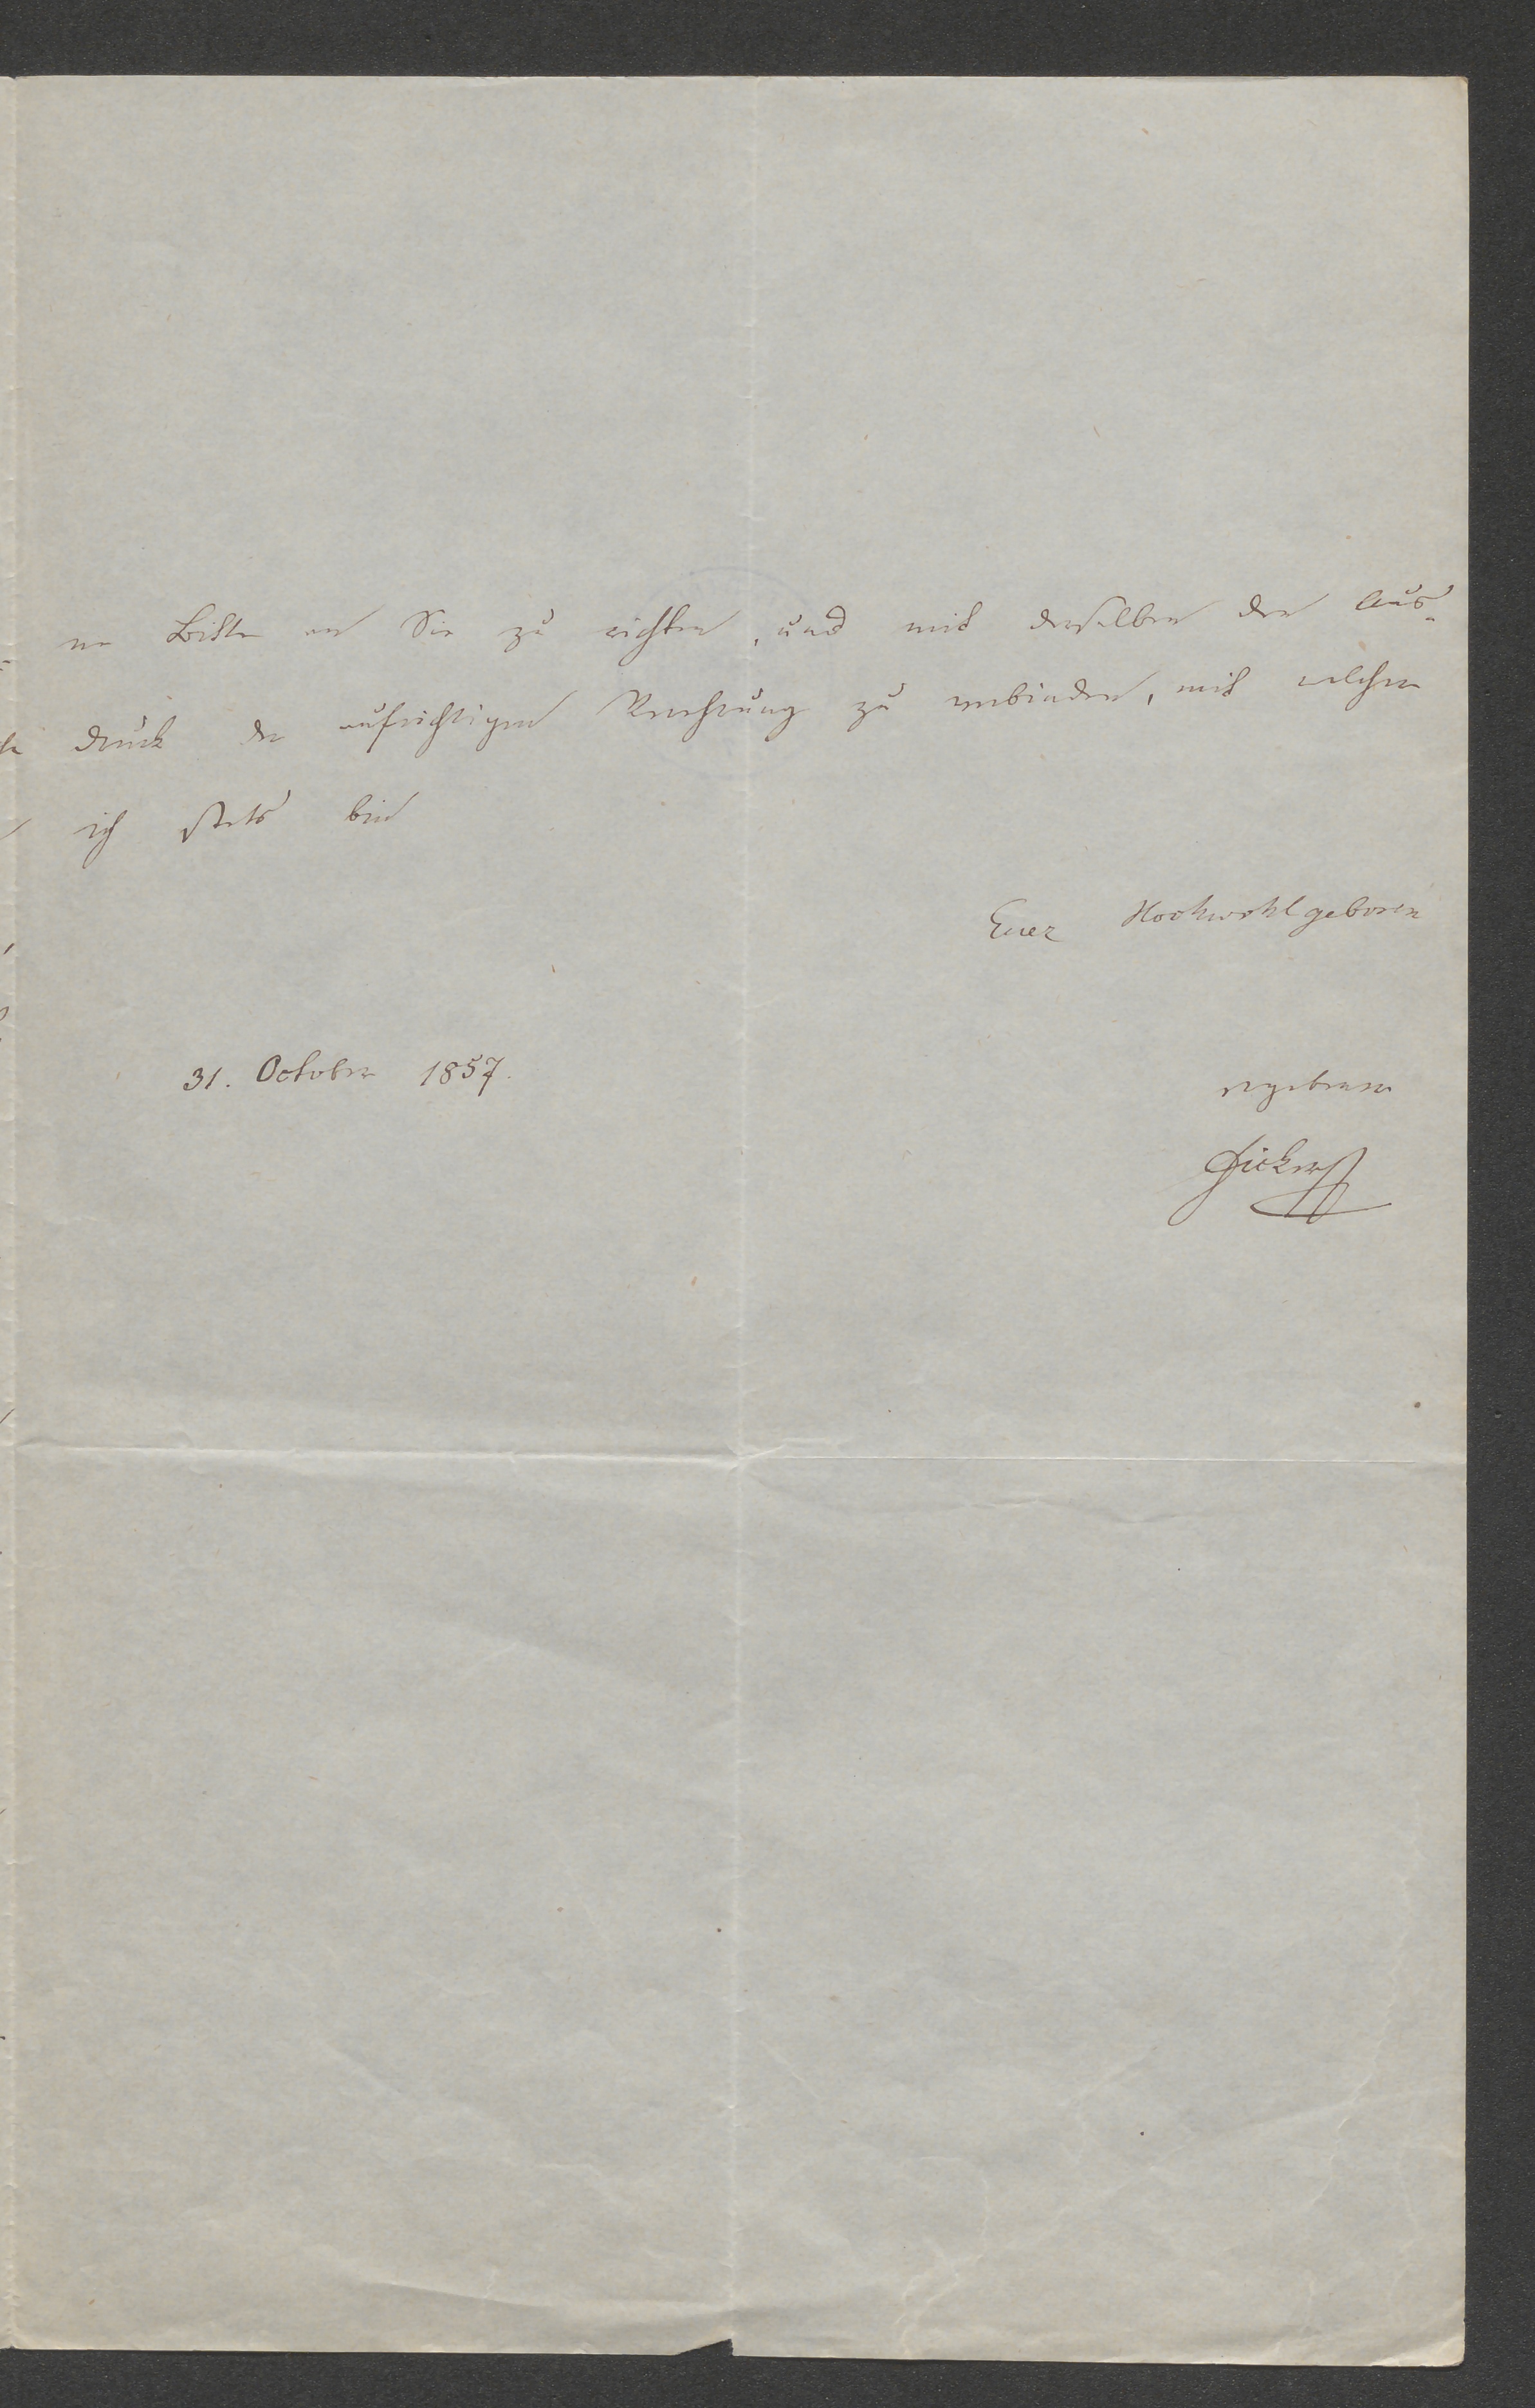 ne Bitte an Sie zu richten, und mit derselben den Aus-
druck der aufrichtigen Verehrung zu verbinden, mit welcher
ich stets bin
Euer Hochwohlgeboren
31. October 1857.
ergebener
Ficker